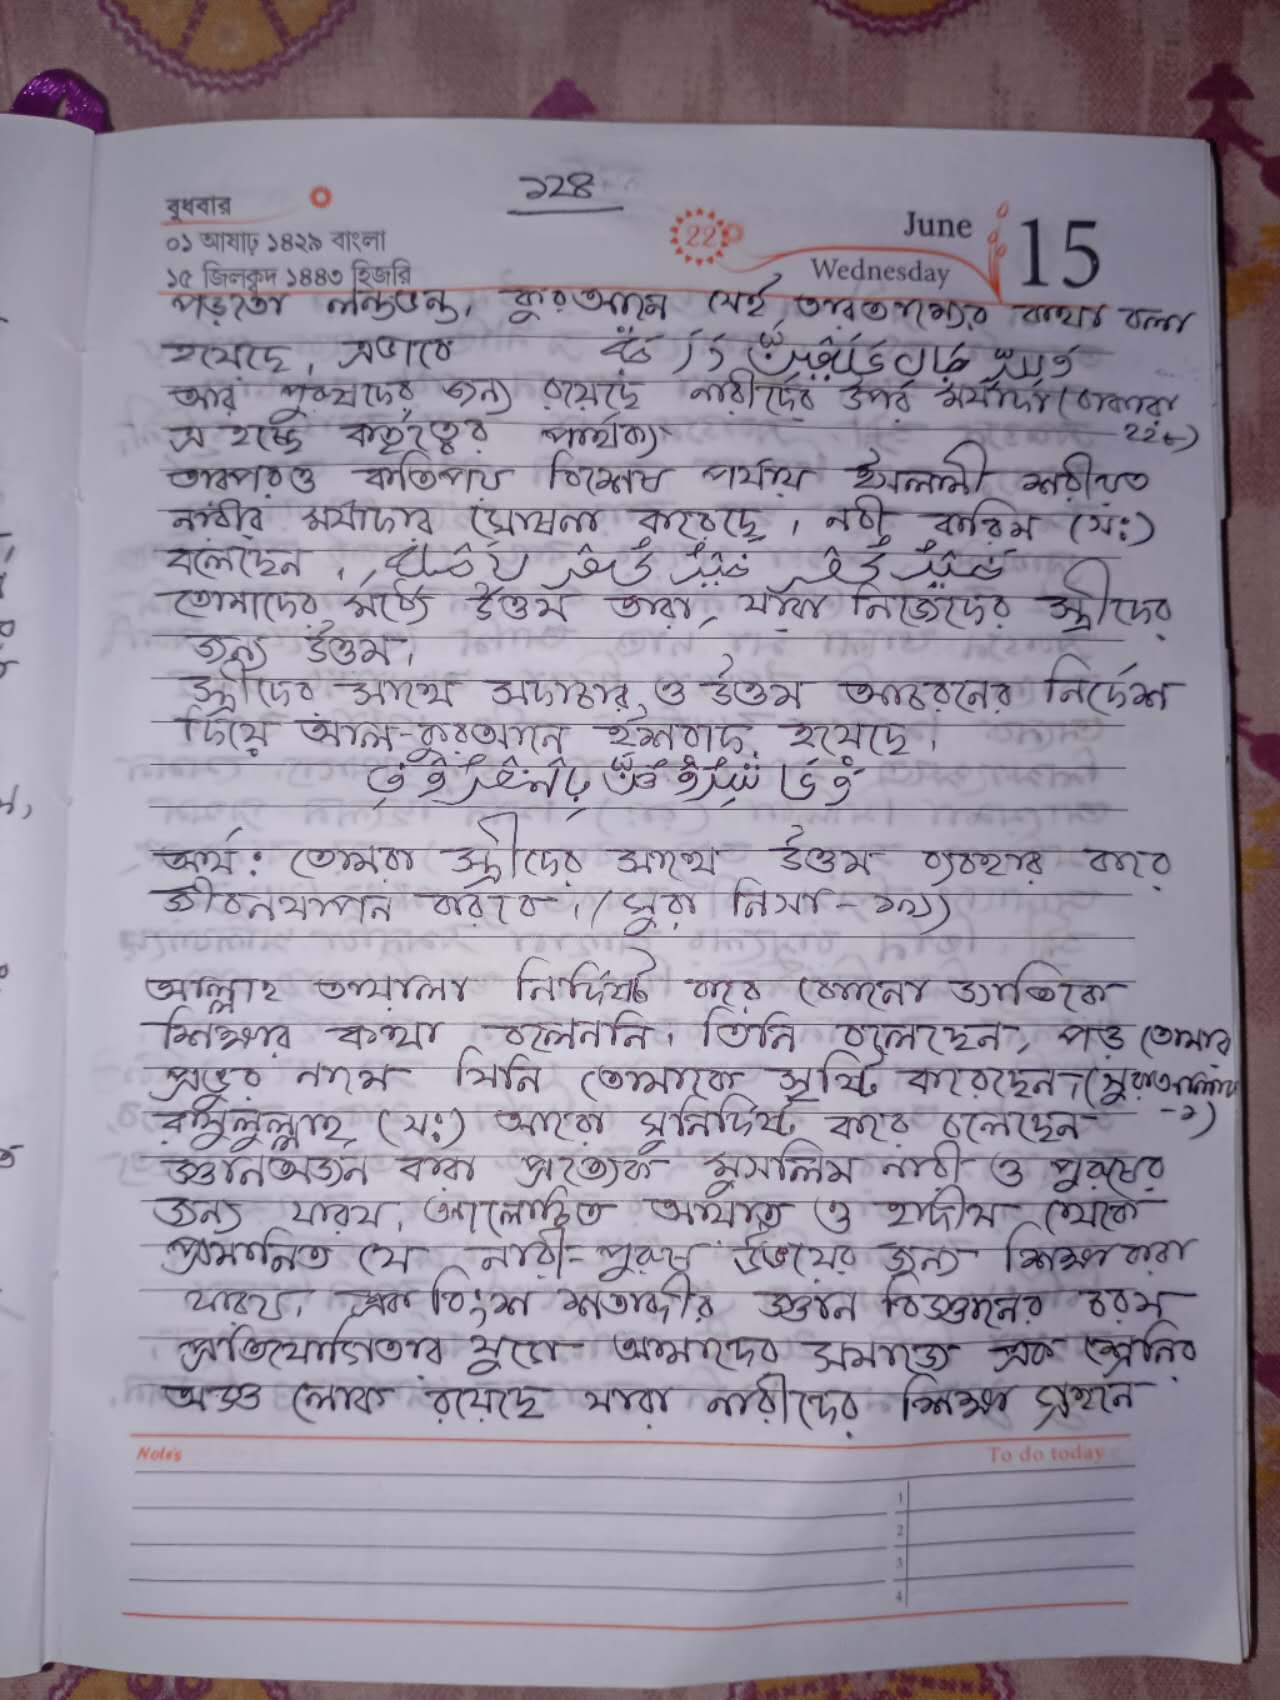 ১২৪
বুধবার
০১ আষাঢ় ১৪২৯ বাংলা
১৫ জিলকুদ ১৪৪৩ হিজরি
22
June 15
Wednesday
পড়তো লন্ডভন্ড। কুরআনে সেই তারতম্যের কথা বলা
হয়েছে, এভাবে
আর পুরুষদের জন্য রয়েছে নারীদের উপর মর্যাদা (বাকারা
২২৮)
এ হচ্ছে কর্তৃত্বের পার্থক্য
তারপরও কতিপয় বিশেষ পর্যায় ইসলামী শরীয়ত
নারীর মর্যাদার ঘোষনা করেছে। নবী কারিম (সঃ)
বলেছেন,
তোমাদের মধ্যে উত্তম তারা, যারা নিজেদের স্ত্রীদের
জন্য উত্তম।
স্ত্রীদের সাথে সদাচার ও উত্তম আচরনের নির্দেশ
দিয়ে আল-কুরআনে ইশরাদ হয়েছে।
অর্থ: তোমরা স্ত্রীদের সাথে উত্তম ব্যবহার করে
জীবনযাপন করবে। (সুরা নিসা-১৯)
আল্লাহ তায়ালা নির্দিষ্ট করে কোনো জাতিকে
শিক্ষার কথা বলেননি। তিনি বলেছেন, পড় তোমার
প্রভুর নামে যিনি তোমাকে সৃষ্টি করেছেন। (সুরা আলাক
-১)
রাসুলুল্লাহ (সঃ) আরো সুনির্দিষ্ট করে বলেছেন
জ্ঞানঅর্জন করা প্রত্যেক মুসলিম নারী ও পুরুষের
জন্য ফরয। আলোচিত আয়াত ও হাদীস থেকে
প্রমানিত যে নারী-পুরুষ উভয়ের জন্য শিক্ষা করা
ফরয। এক বিংশ শতাব্দীর জ্ঞান বিজ্ঞানের চরম
প্রতিযোগিতার যুগে আমাদের সমাজে এক শ্রেনির
অজ্ঞ লোক রয়েছে যারা নারীদের শিক্ষা গ্রহনে
Notes
To do today
1
2
3
4